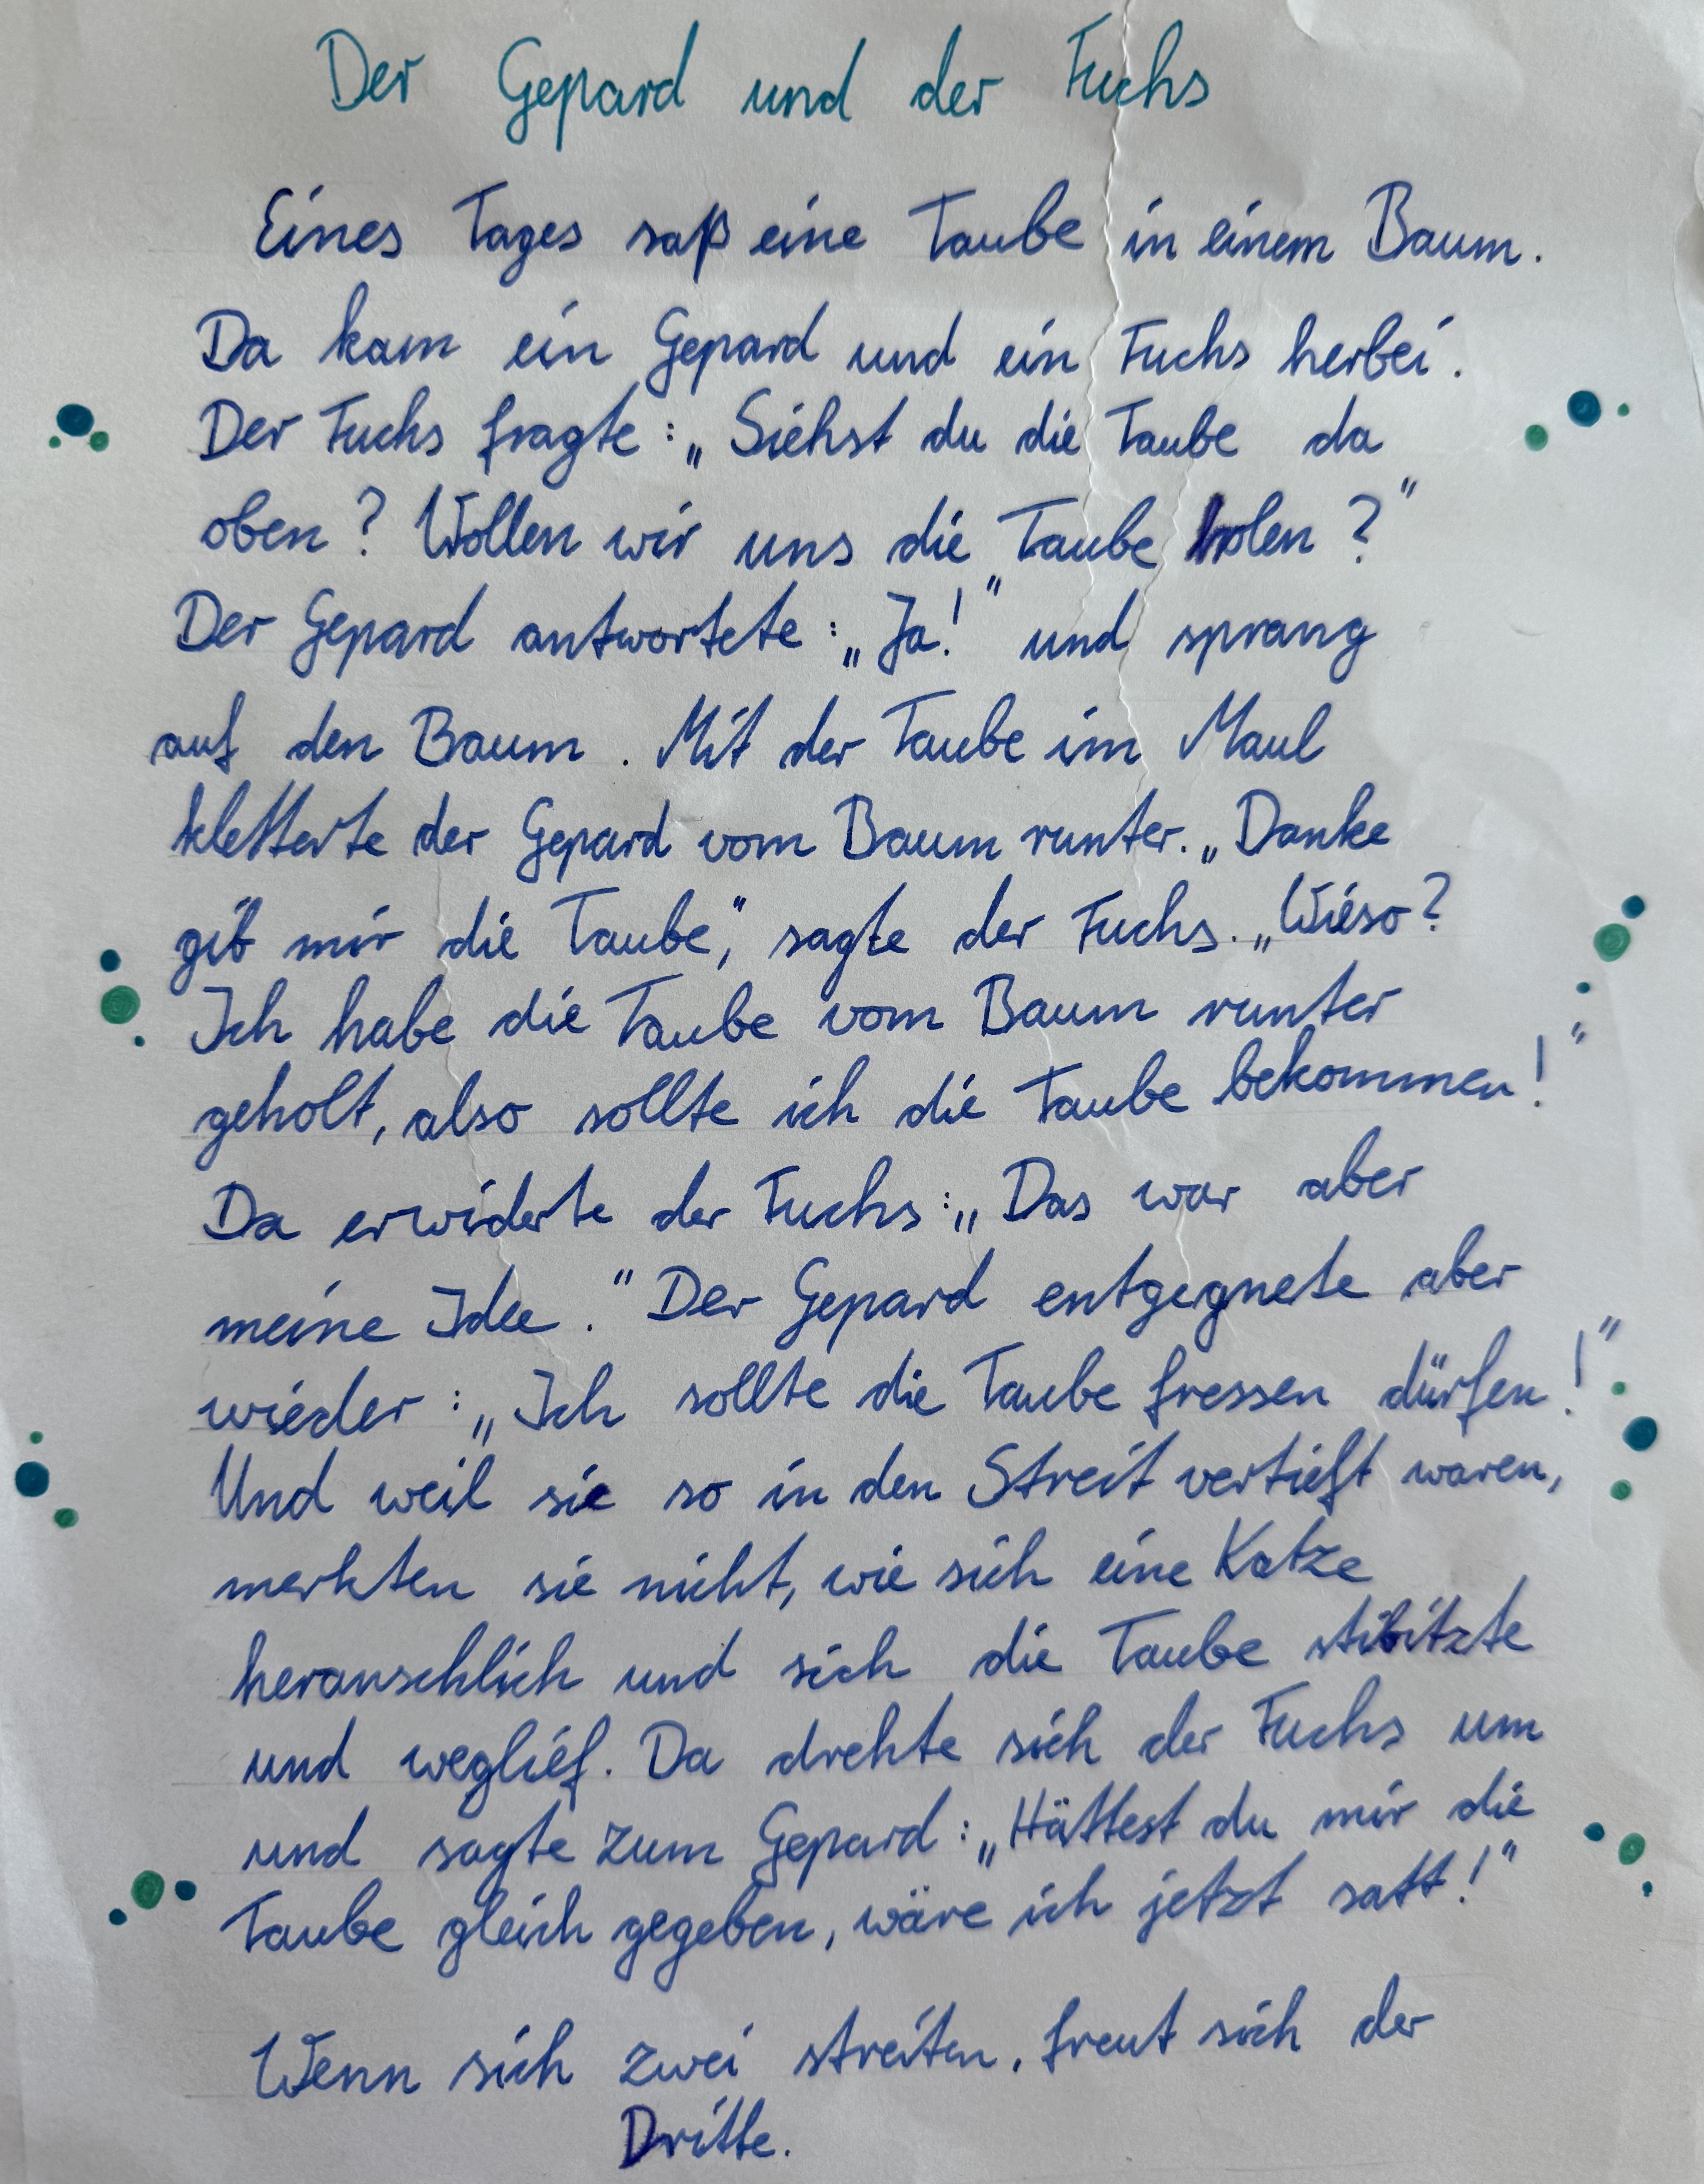 Der Gepard und der Fuchs
Eines Tages saß eine Taube in einem Baum.
Da kam ein Gepard und ein Fuchs herbei.
Der Fuchs fragte: „Siehst du die Taube da
oben? Wollen wir uns die Taube holen?"
Der Gepard antwortete: „Ja!" und sprang
auf den Baum. Mit der Taube im Maul
kletterte der Gepard vom Baum runter. „Danke
gib mir die Taube", sagte der Fuchs. „Wieso?
Ich habe die Taube vom Baum runter
geholt, also sollte ich die Taube bekommen!"
Da erwiderte der Fuchs: „Das war aber
meine Idee." Der Gepard entgegnete aber
wieder: „Ich sollte die Taube fressen dürfen!"
Und weil sie so in den Streit vertieft waren,
merkten sie nicht, wie sich eine Katze
heranschlich und sich die Taube stibitzte
und weglief. Da drehte sich der Fuchs um
und sagte zum Gepard: „Hättest du mir die
Taube gleich gegeben, wäre ich jetzt satt!"
Wenn sich zwei streiten, freut sich der
Dritte.